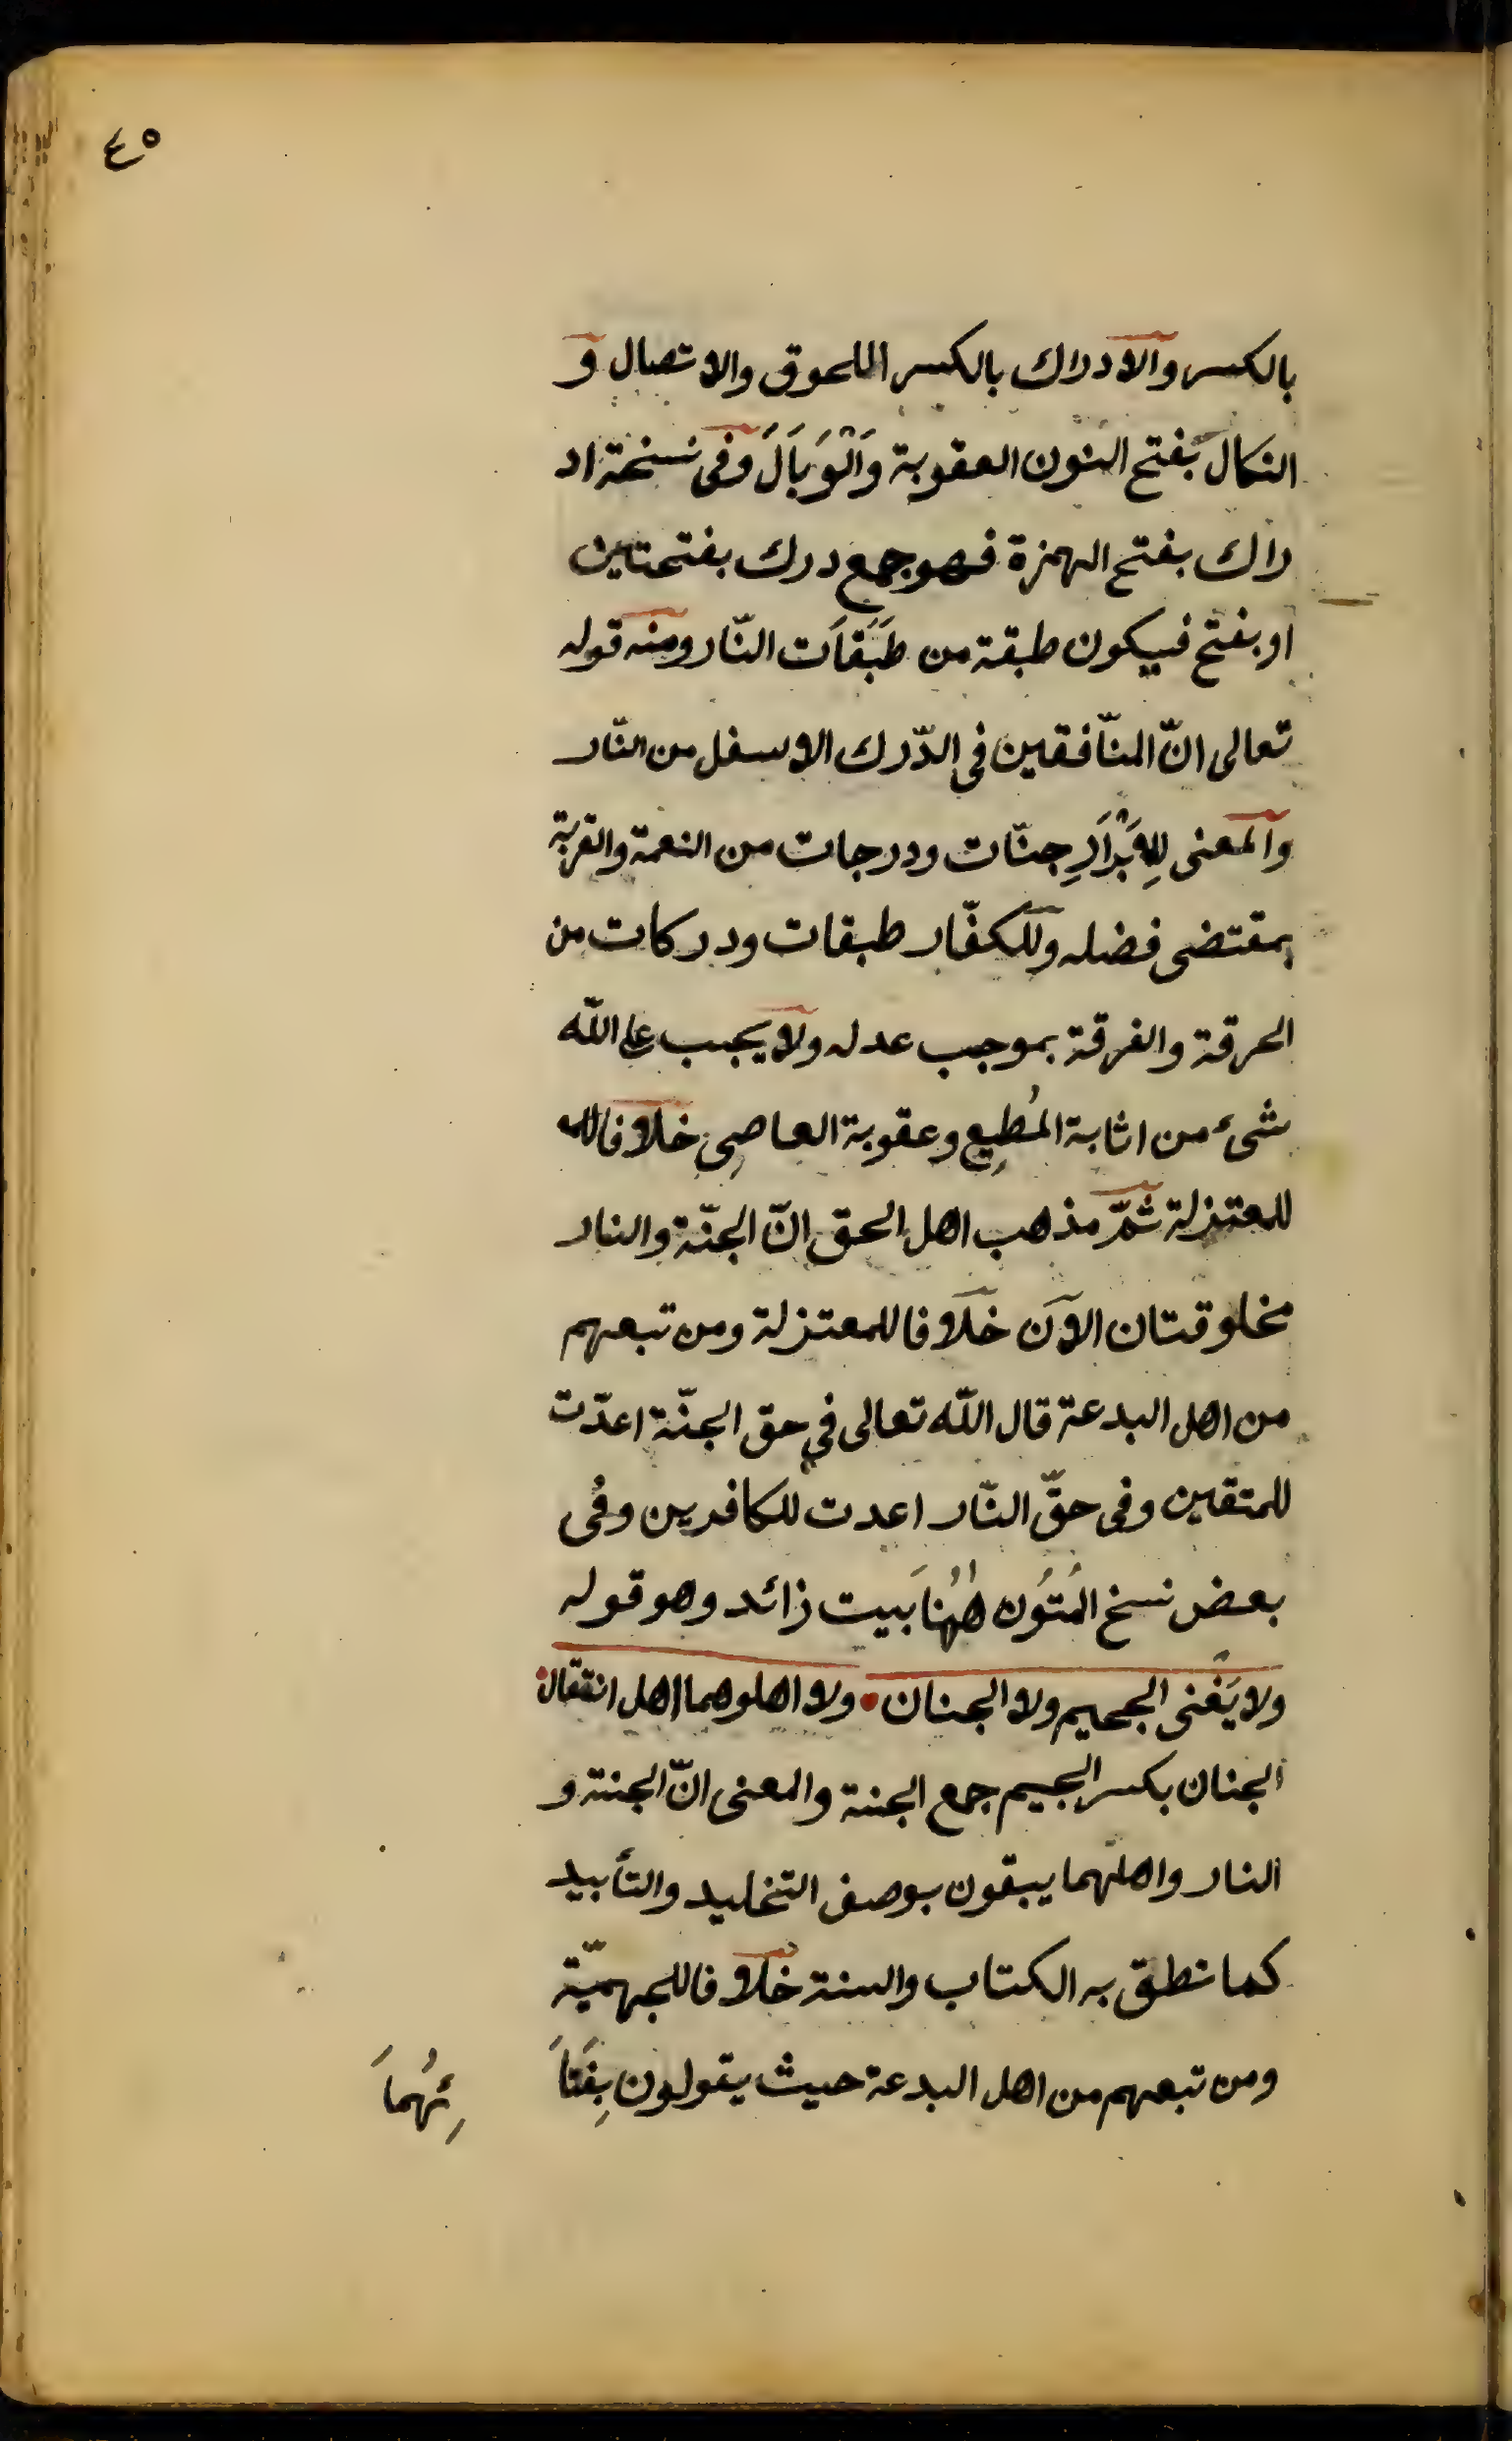 ٤٥
بالكسر والادراك بالكسر اللحوق والاتصال و
النكال بَفتح النون العقوبة وَالْوَبَالَ وفى نسخة اد
راك بفتح الهمزة فهو جمع درك بفتحتين
او بفتح فيكون طبقة من طَبَقَات النّار ومنه قوله
تعالى انّ المنّافقين في الدّرك الاسفل من النّار
والمعنى لِلاَبْرَارِ جنّات ودرجات من النعمة والقربة
بمقتضى فضله وللكفّار طبقات ودركات من
الحرقة والفرقة بموجب عدله ولا يجب على الله
شىء من اثابة المُطِيع وعقوبة العاصِي خلافا لله
للمعتزلة ثمّ مذهب اهل الحق انّ الجنّة والنار
مخلوقتان الآن خلافا للمعتزلة ومن تبعهم
من اهل البدعة قال الله تعالى في حق الجنّة اعدّت
للمتقين وفى حقّ النّار اعدت للكافرين وفى
بعض نسخ المُتُون هٰهُنَا بَيت زائد وهو قوله
ولا يَفنى الجحيم ولا الجنان • ولا اهلوهما اهل انتقال
الجنان بكسر الجيم جمع الجنة والمعنى انّ الجنة و
النار واهلهما يبقون بوصف التخليد والتأبيد
كما نطق به الكتاب والسنة خلافا للجهميّة
ومن تبعهم من اهل البدعة حيث يقولون بِفَنَا
ئِهُمَا